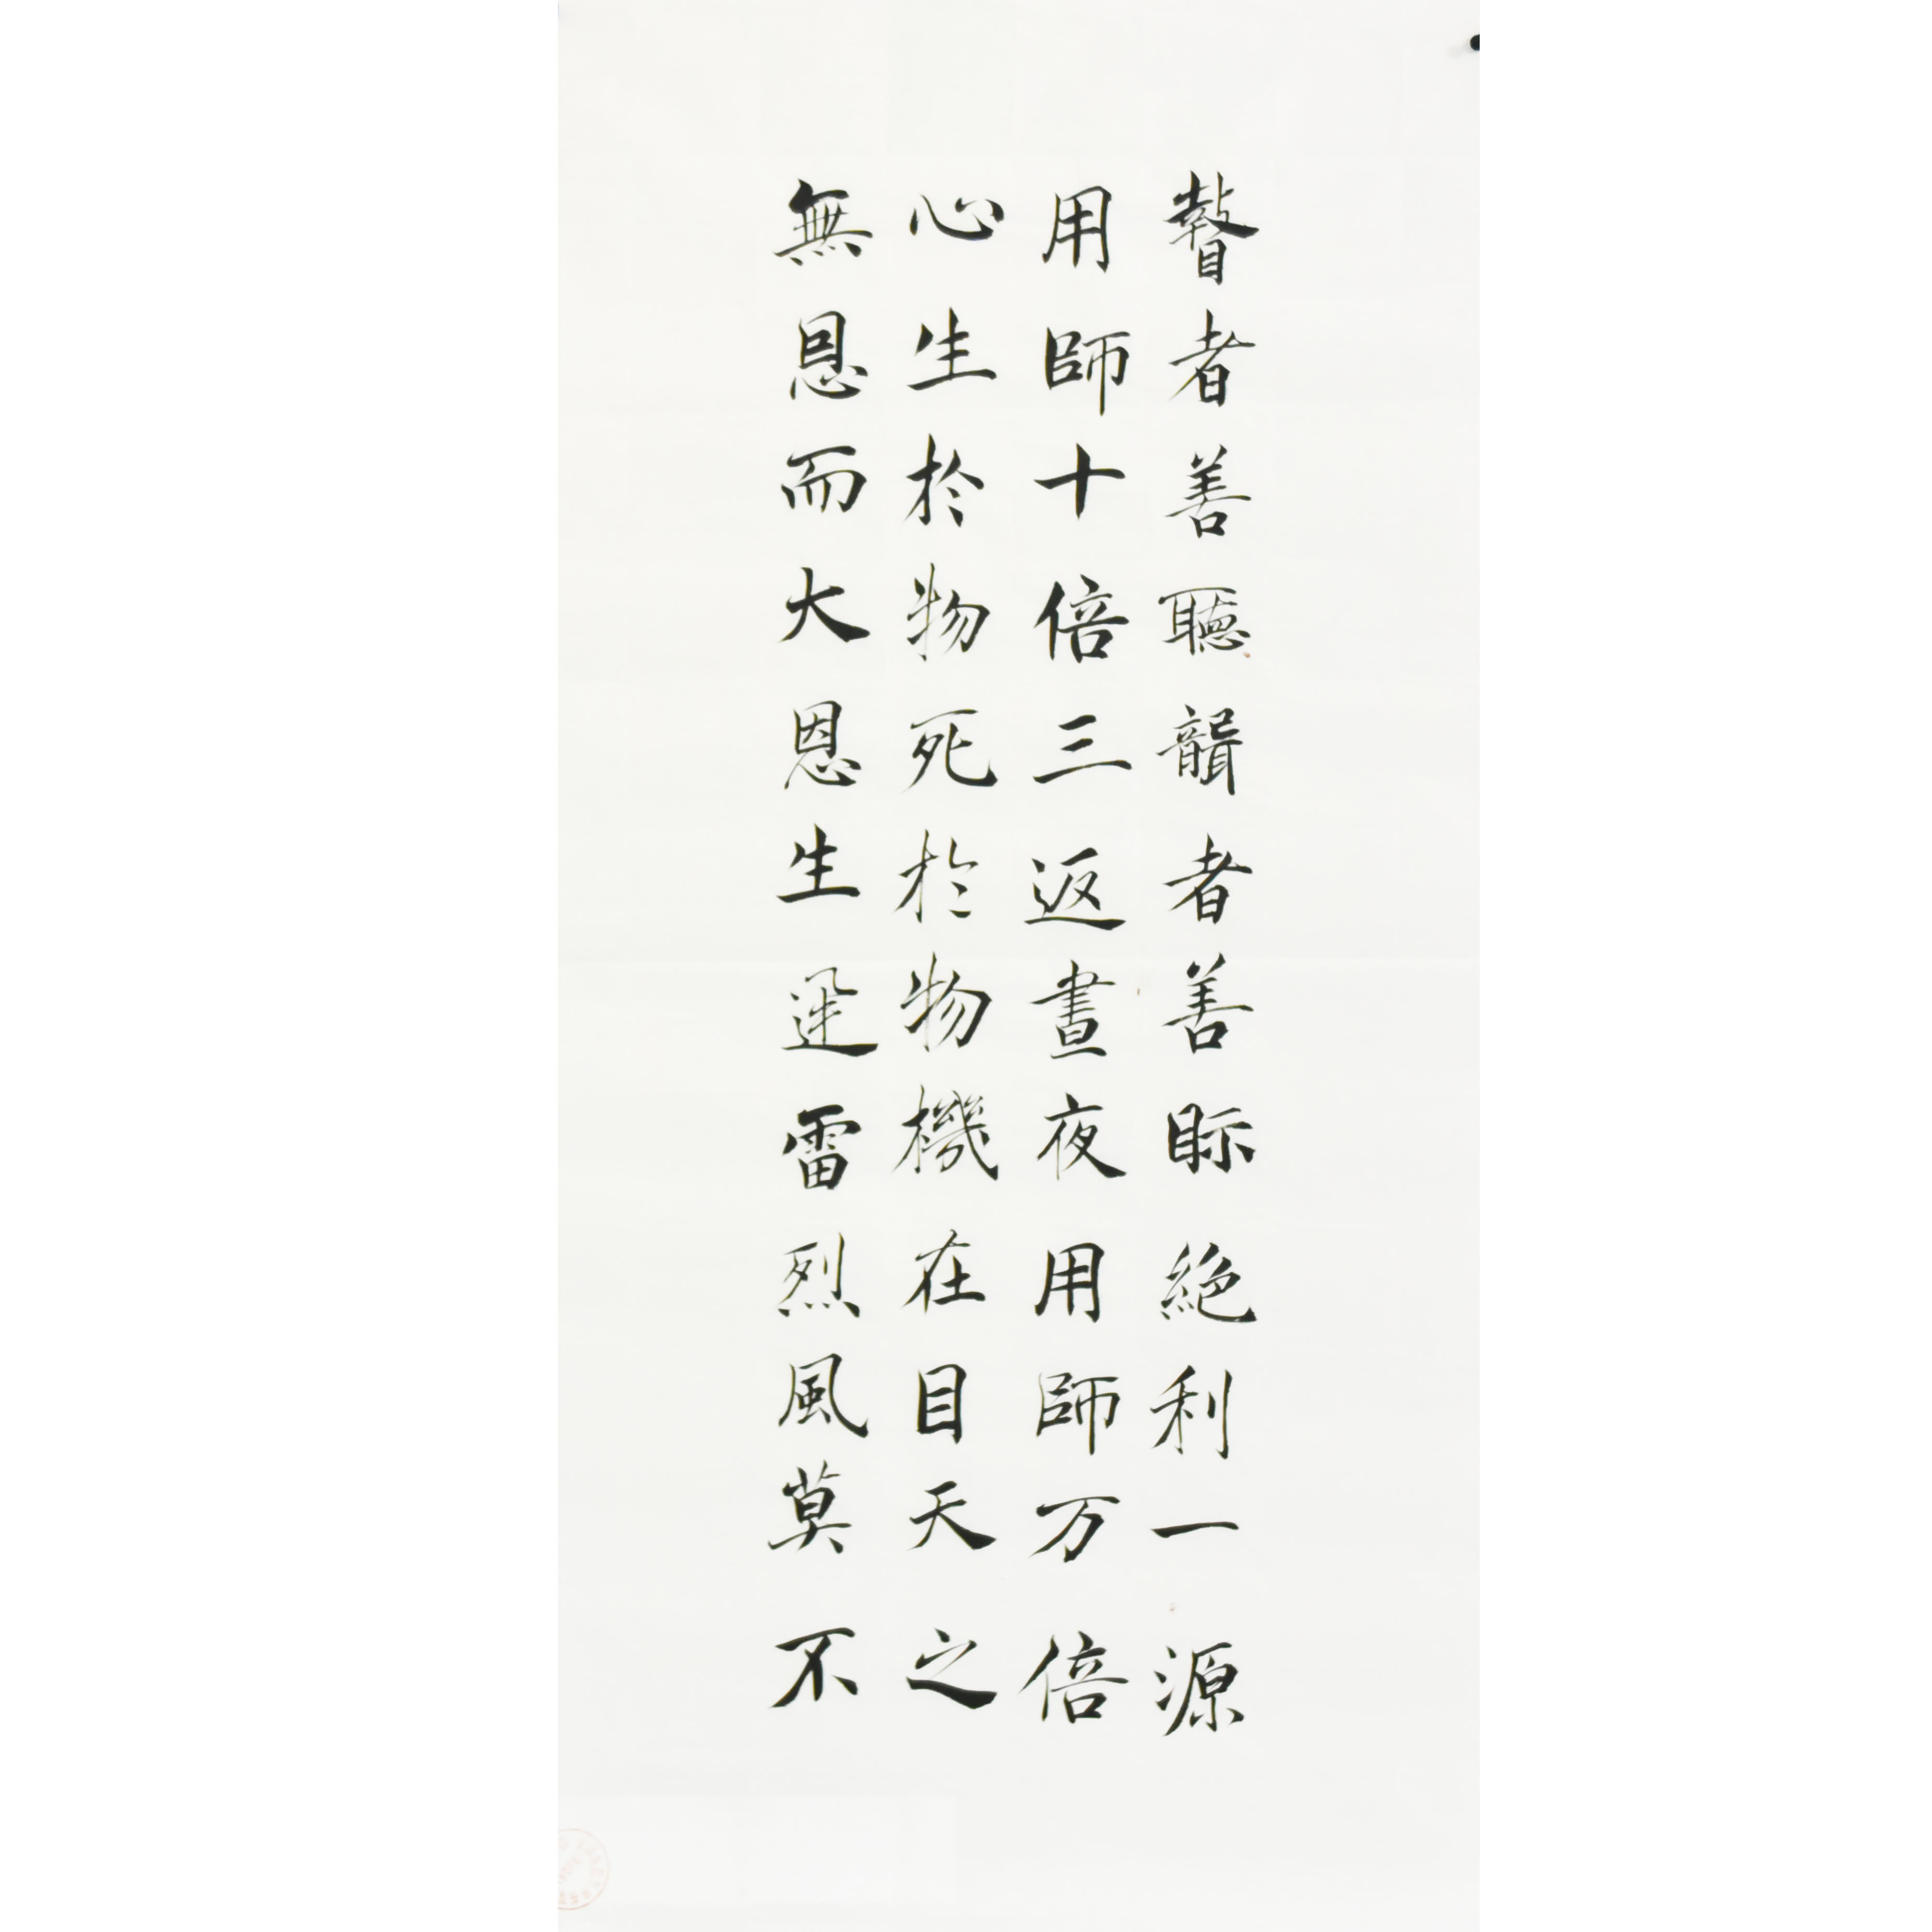 瞽者善聽聾者善眎絶利一源
用師十倍三返晝夜用師万倍
心生於物死於物機在目天之
無恩而大恩生迅雷烈風莫不